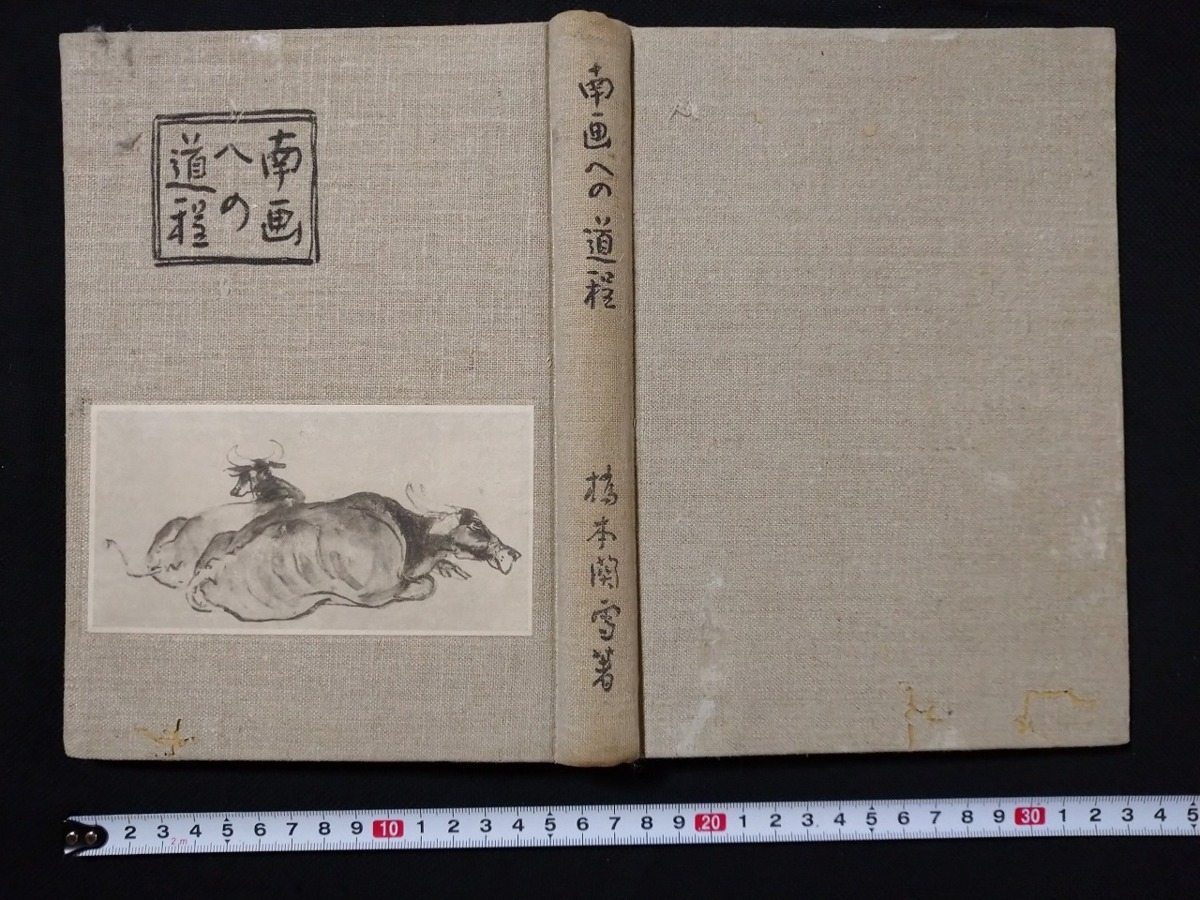 南画
への
道程
南画への道程
橋本関雪著
2 3 4 5 6 7 8 9 10 1 2 3 4 5 6 7 8 9 20 1 2 3 4 5 6 7 8 9 30 1 2 3 4 5
2m